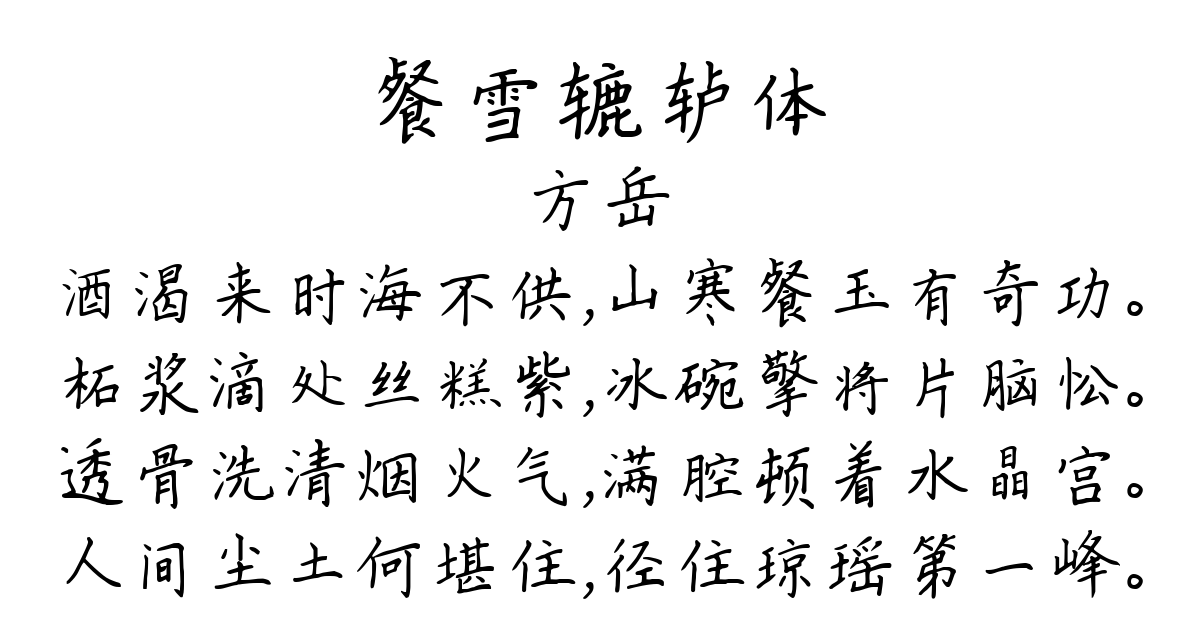 餐雪辘轳体
方岳
酒渴来时海不供,山寒餐玉有奇功。
柘浆滴处丝糕紫,冰碗擎将片脑忪。
透骨洗清烟火气,满腔顿着水晶宫。
人间尘土何堪住,径住琼瑶第一峰。